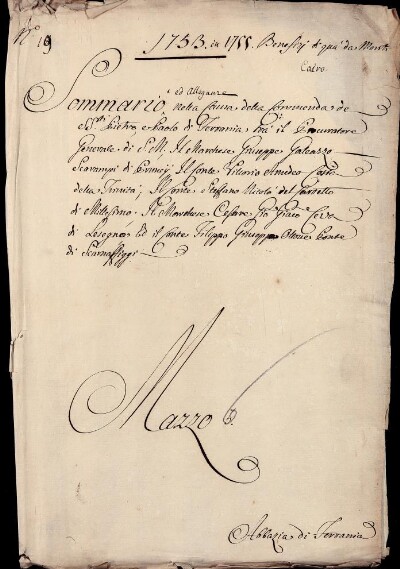 N.º 19
1753. in 1755. Benefizj di quà da Monti
Calvo
ed Alleganze
Sommario, nella Causa della Commenda de
SS.ti Pietro e Paolo di Ferrania trà il Procuratore
Generale di S. M. Il Marchese Giuseppe Galeazzo
Scarampi di Il Conte Vittorio Amedeo
della Trinità; Il Conte Steffano Nicolò del Carretto
di Millesimo. Il Marchese Cesare Gio Giaco Ceva
di Lesegno, Ed il Conte Filippo Giuseppe Conte
di Scarnaffiggi
Mazzo 6.
Abbazia di Ferrania